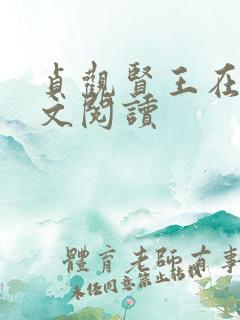 貞觀賢王在
文閱讀
體育老師有事
未經同意禁止轉載